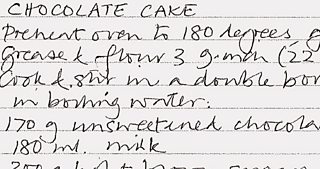 CHOCOLATE CAKE
Preheat oven to 180 degrees
Grease & flour 3 9-inch (22
Cook & stir in a double bo
in boiling water.
170 g unsweetened chocola
180 ml. milk
200 g